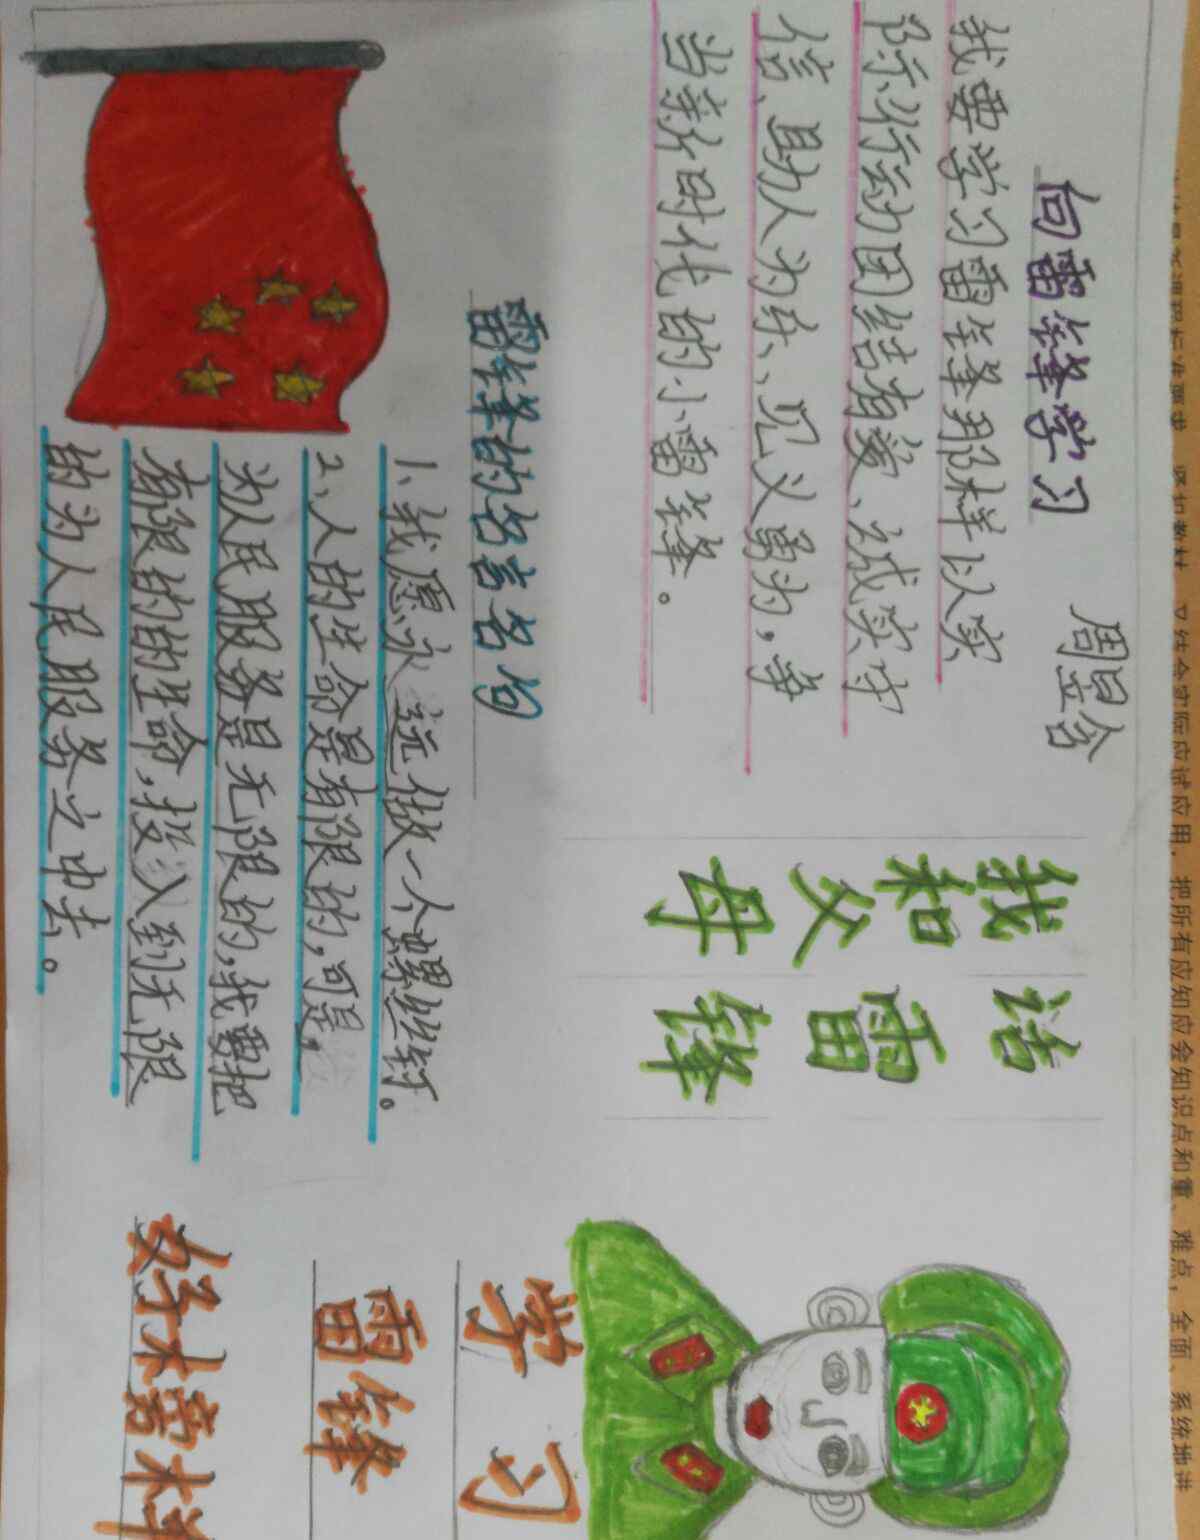 向雷锋学习
我要学习雷锋那样以实
际行动团结有爱、诚实守
信、助人为乐、见义勇为，争
当新时代的小雷锋。
雷锋的名言名句
1、我愿永远做一个螺丝钉。
2、人的生命是有限的，可是，
为人民服务是无限的，我要把
有限的的生命，投入到无限
的为人民服务之中去。
我和父母
话雷锋
学习
雷锋
好木旁样
又结合实际应试应用，把所有应知应会知识点和重、难点，全面、系统地讲